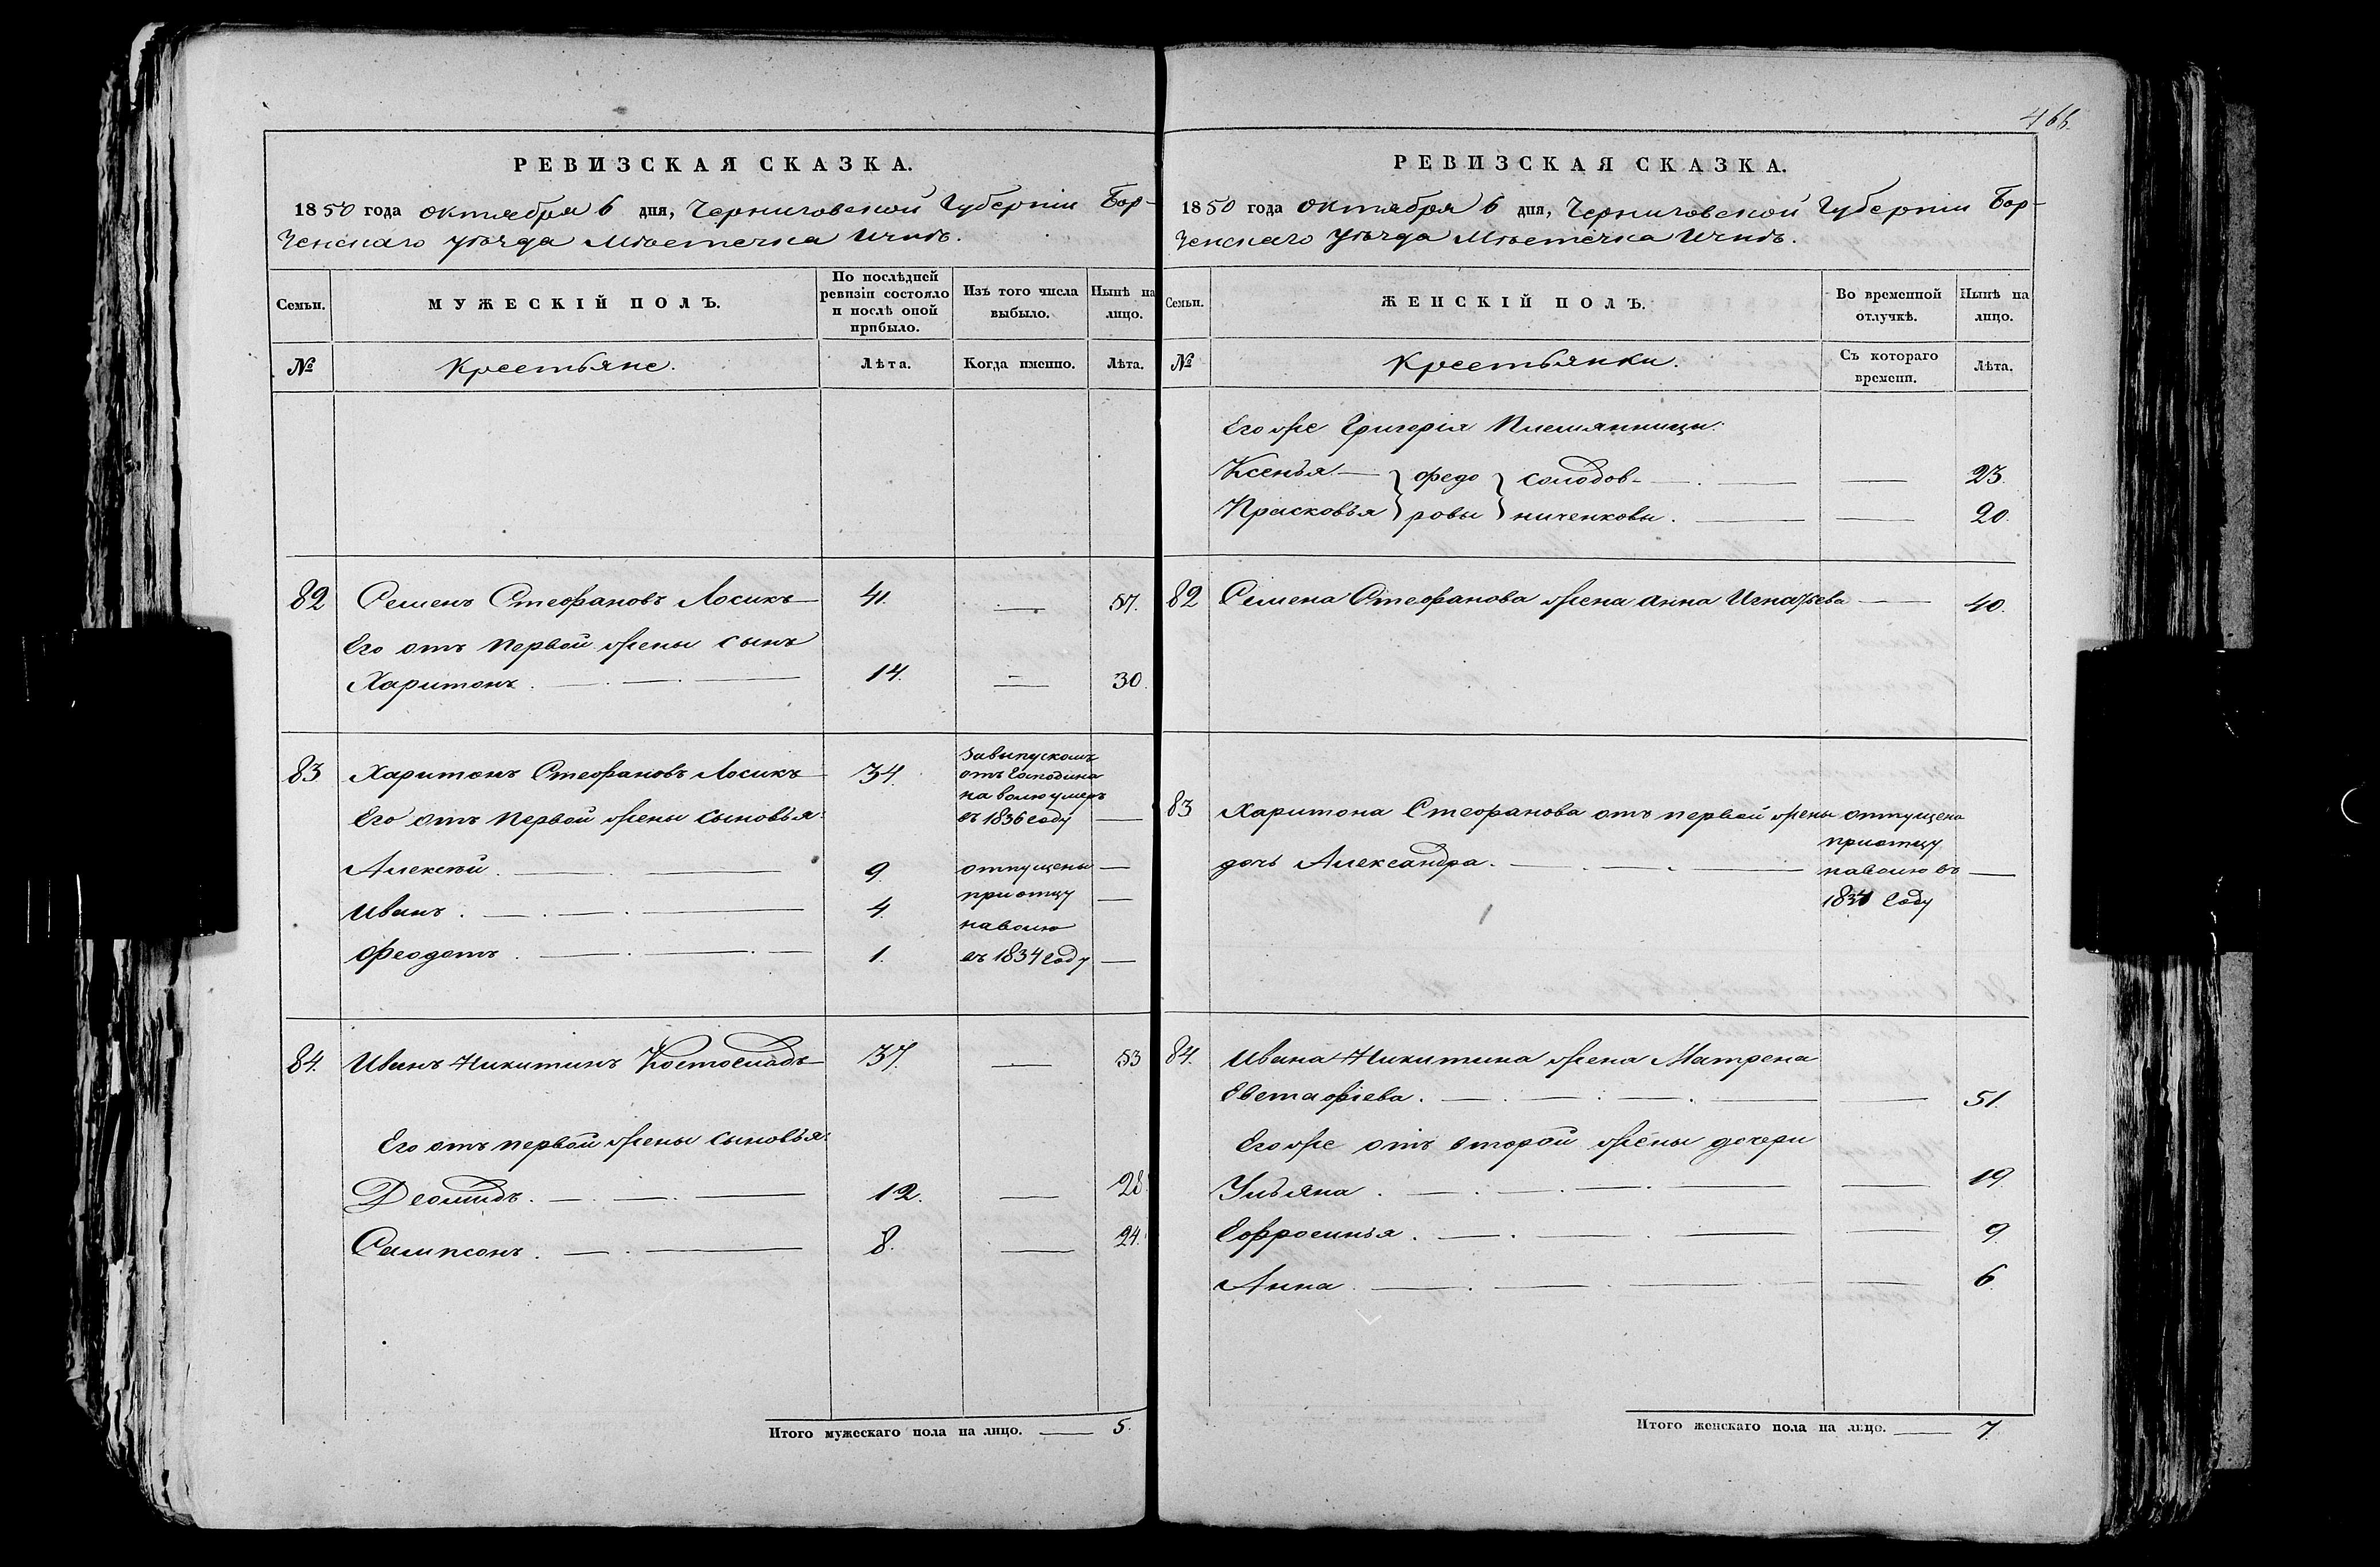 466.
РЕВИЗСКАЯ СКАЗКА.
1850 года Октября 6 дня, Черниговской Губерніи Бор-
зенскаго Уѣзда Мѣстечка Ични.
Семьи.
МУЖЕСКІЙ ПОЛЪ.
По послѣдней
ревизіи состояло
и послѣ оной
прибыло.
Изъ того числа
выбыло.
Нынѣ на
лицо.
№
Крестьяне.
Лѣта.
Когда именно.
Лѣта.
82 Семенъ Стефановъ Лосикъ 41. — 57.
Его отъ первой жены сынъ
Харитонъ. 14. — 30.
83 Харитонъ Стефановъ Лосикъ 34.
За выпускомъ
отъ Господина
на волю умеръ
въ 1836 году —
Его отъ первой жены сыновья:
Алексѣй. 9. отпущены —
Иванъ. 4. при отцу —
на волю
Феодотъ. 1. въ 1834 году —
84. Иванъ Никитинъ Костоснабъ 37. — 53
Его отъ первой жены сыновья:
Деомидъ. 12. — 28.
Сампсонъ. 8. — 24.
Итого мужескаго пола на лицо. — 5.
РЕВИЗСКАЯ СКАЗКА.
1850 года Октября 6 дня, Черниговской Губерніи Бор-
зенскаго Уѣзда Мѣстечка Ични.
Семьи.
ЖЕНСКІЙ ПОЛЪ.
Во временной
отлучкѣ.
Нынѣ на
лицо.
№
Крестьянки.
Съ котораго
времени.
Лѣта.
Его же Григорія Племянницы:
Ксенья — } Федо } Солодов- — 23.
Прасковья } ровы } ниченковы. — 20.
82 Семена Стефанова жена Анна Игнатьева — 40.
83 Харитона Стефанова отъ первой жены отпущена
при отцу
дочь Александра. на волю въ —
1834 Году
84. Ивана Никитина жена Матрена
Евстафіева. — 51.
Его же отъ второй жены дочери
Ульяна. — 19.
Ефросинья. — 9.
Анна. — 6.
Итого женскаго пола на лицо. — 7.